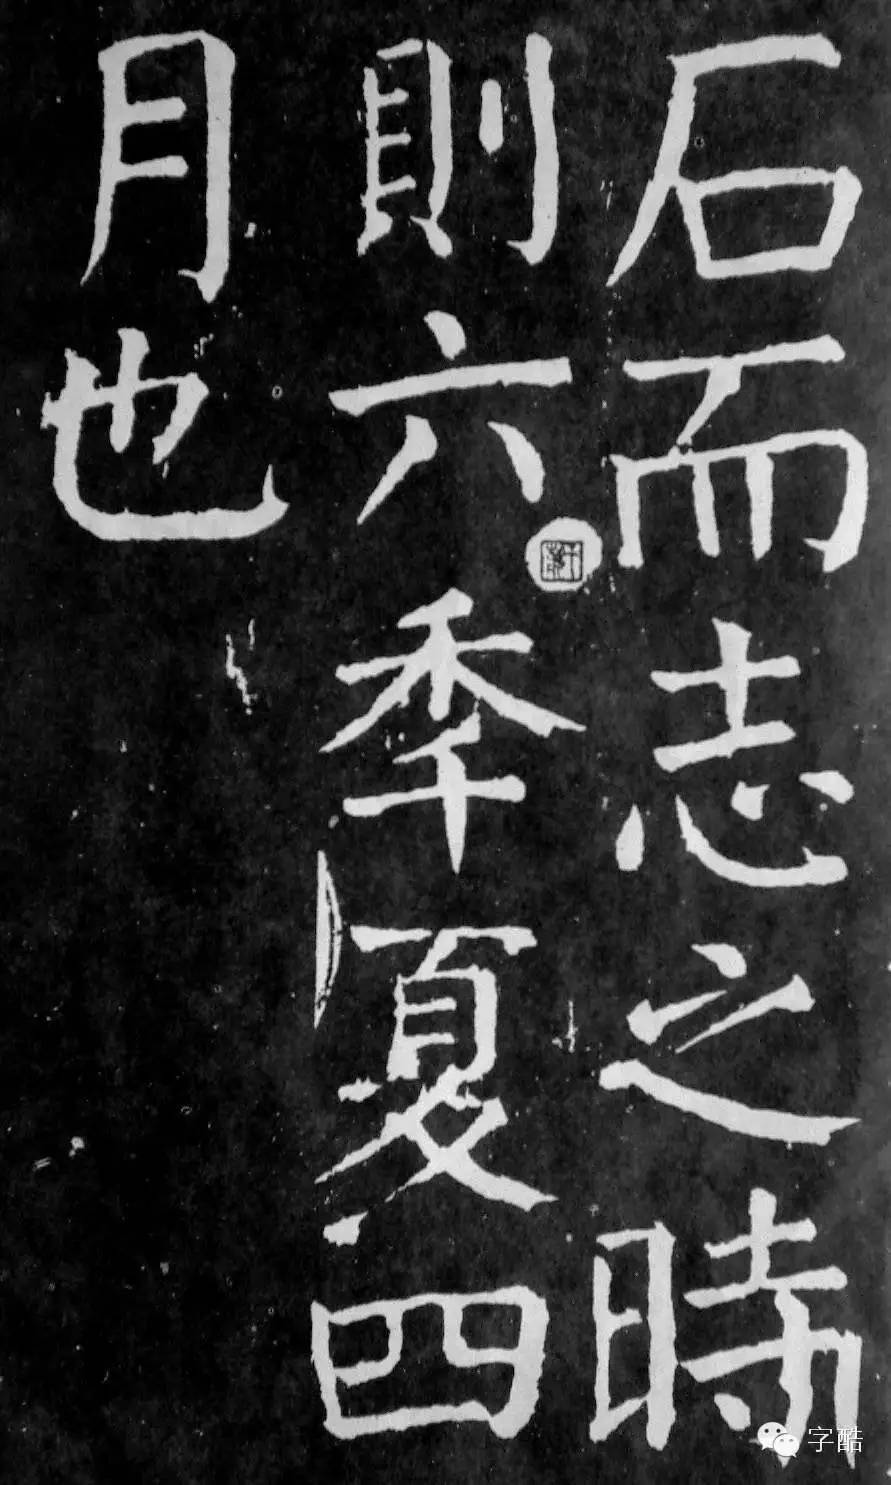 石而志之時
則六秊夏四
月也
字酷